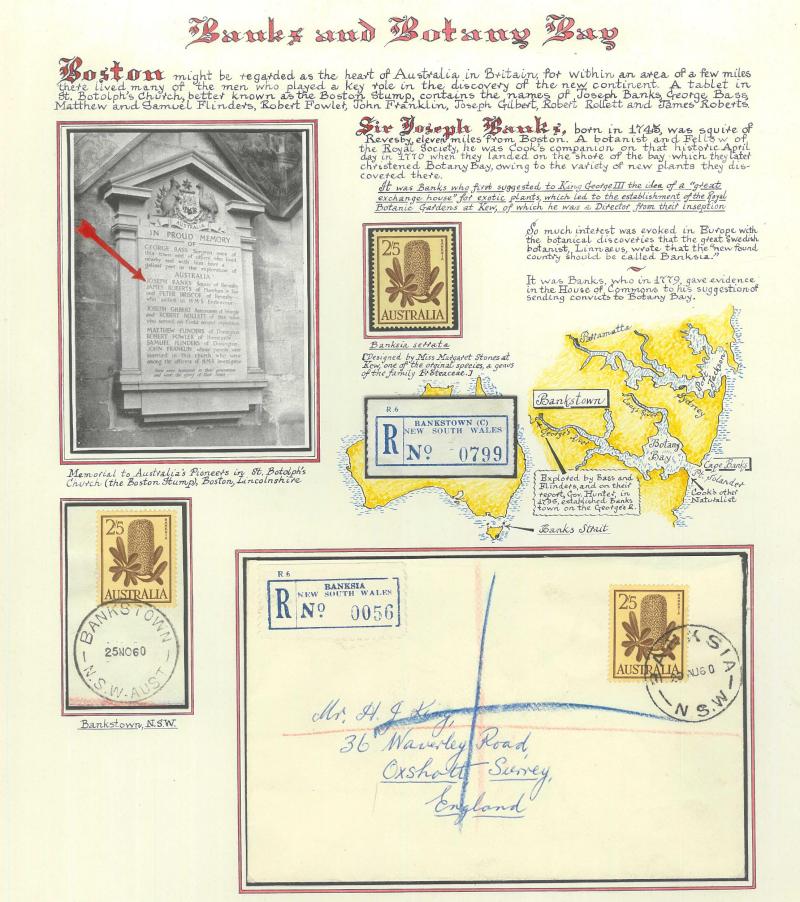 Banks and Botany Bay
Boston might be regarded as the heart of Australia in Britain, for within an area of a few miles
there lived many of the men who played a key role in the discovery of the new continent. A tablet in
St. Botolph's Church, better known as the Boston Stump, contains the names of Joseph Banks, George Bass,
Matthew and Samuel Flinders, Robert Fowler, John Franklin, Joseph Gilbert, Robert Rollett and James Roberts.
Sir Joseph Banks, born in 1743, was squire of
Revesby, eleven miles from Boston. A botanist and Fellow of
the Royal Society, he was Cook's companion on that historic April
day in 1770 when they landed on the shore of the bay which they later
christened Botany Bay, owing to the variety of new plants they dis-
covered there.
It was Banks who first suggested to King George III the idea of a "great
exchange house" for exotic plants, which led to the establishment of the Royal
Botanic Gardens at Kew, of which he was a Director from their inseption
AUSTRALIA
IN PROUD MEMORY
OF
GEORGE BASS Surgeon
AUSTRALIA
JOSEPH BANKS Squire of Revesby
JAMES ROBERTS of Mareham le Fen
and PETER BRISCOE of Revesby
who sailed in H.M.S. Endeavour
JOSEPH GILBERT
and ROBERT ROLLETT of this town
who served on Cook's second expedition
MATTHEW FLINDERS of Donington
ROBERT FOWLER of Horncastle
SAMUEL FLINDERS of Donington
JOHN FRANKLIN whose parents were
married in this church who were
among the officers of H.M.S. Investigator
Memorial to Australia's Pioneers in St. Botolph's
Church (the Boston Stump), Boston, Lincolnshire
2/5
BANKSIA
AUSTRALIA
Banksia serrata
[Designed by Miss Margaret Stones at
Kew, one of the original species, a genus
of the family Proteaceae.]
So much interest was evoked in Europe with
the botanical discoveries that the great Swedish
botanist, Linnaeus, wrote that the "new found
country should be called Banksia."
~
It was Banks, who in 1779, gave evidence
in the House of Commons to his suggestion of
sending convicts to Botany Bay.
Parramatta
Port Jackson
Sydney
Bankstown
Cook's River
George's River
Botany
Bay
Cape Banks
Pt. Solander
Cook's other
Naturalist
Explored by Bass and
Flinders, and on their
report, Gov. Hunter, in
1796, established Banks
town on the George's R.
R 6
R
BANKSTOWN (C)
NEW SOUTH WALES
No 0799
Banks Strait
2/5
BANKSIA
AUSTRALIA
BANKSTOWN
25NO60
N.S.W-AUST
Bankstown, N.S.W.
R 6
R
BANKSIA
NEW SOUTH WALES
No 0056
2/5
BANKSIA
AUSTRALIA
BANKSIA
AU60
N.S.W
Mr. H. J. King,
36 Waverley Road,
Oxshott Surrey,
England